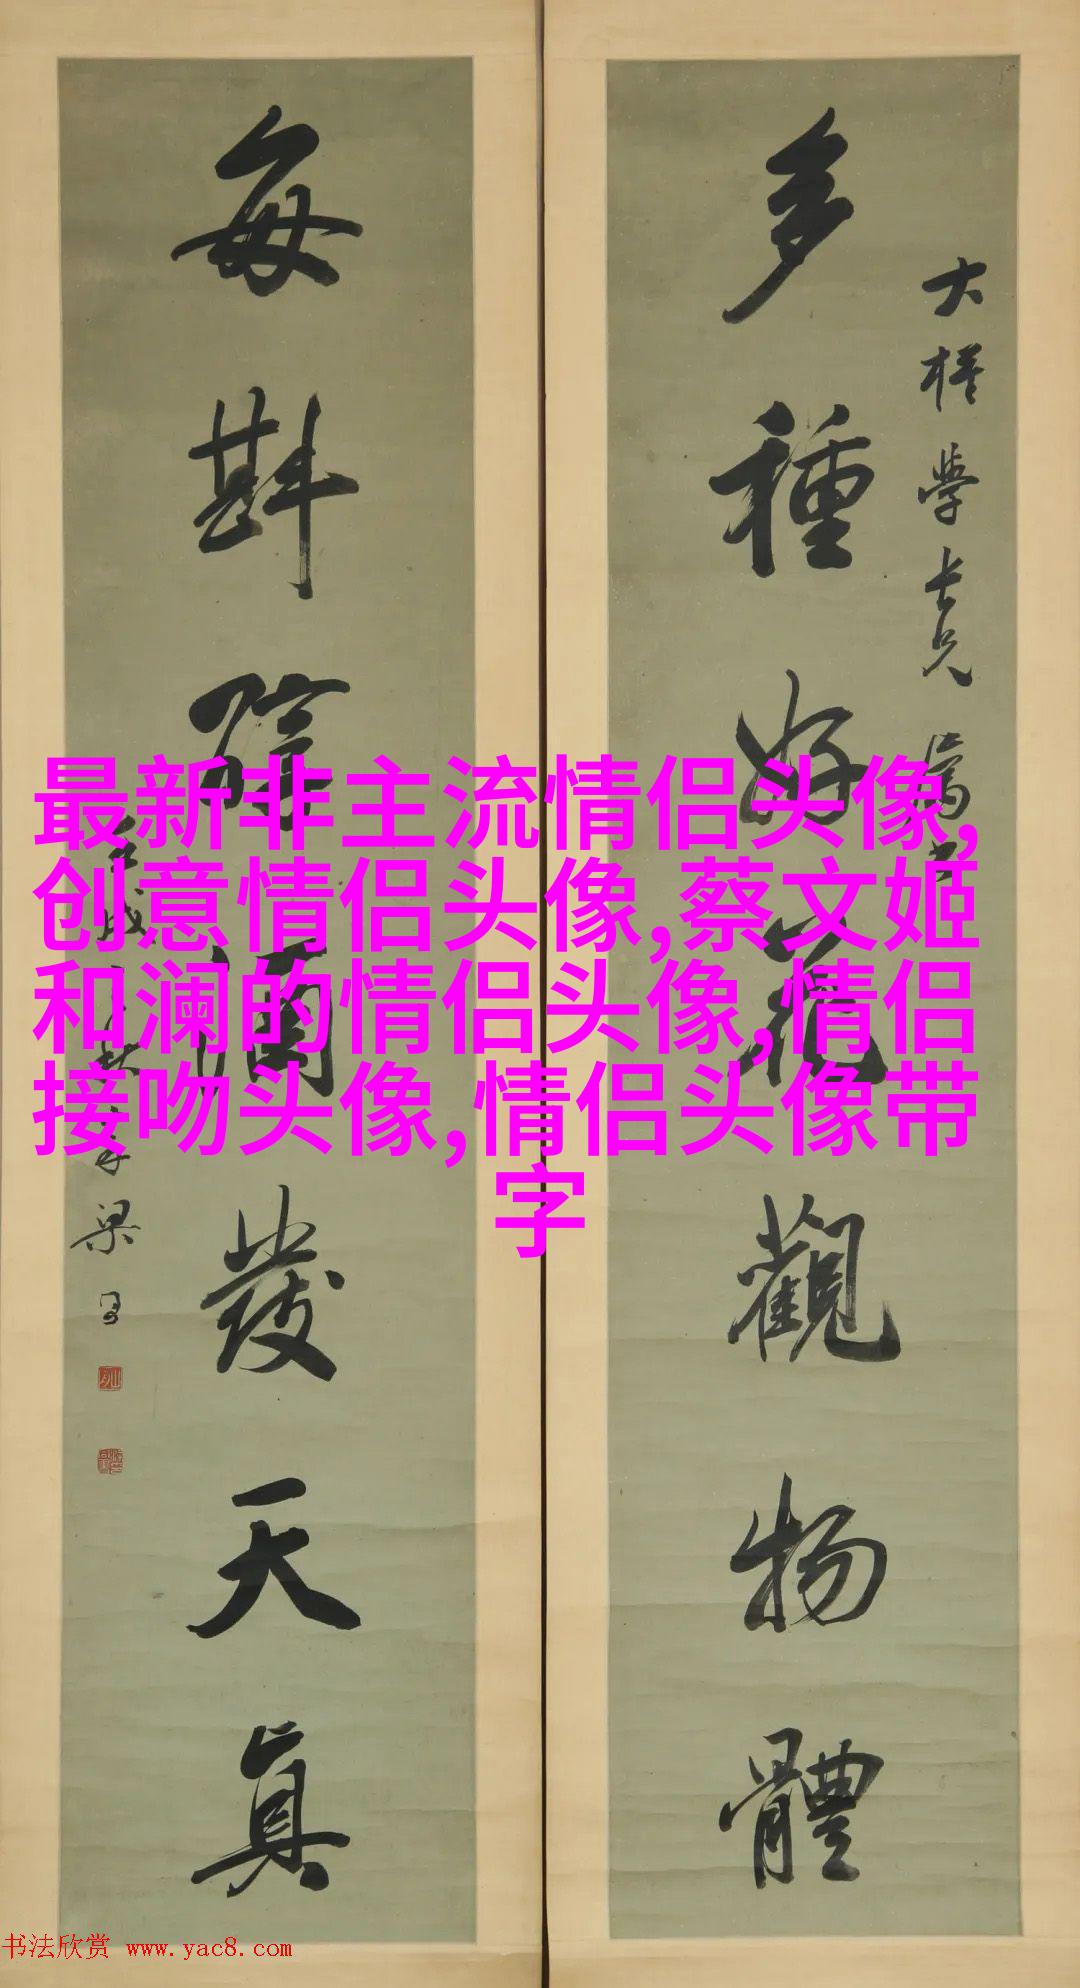 多種好花觀物體
大楳學士兄
每斟
發天真
梁
最新非主流情侣头像,
创意情侣头像,蔡文姬
和澜的情侣头像,情侣
接吻头像,情侣头像带
字
书法欣赏 www.yac8.com